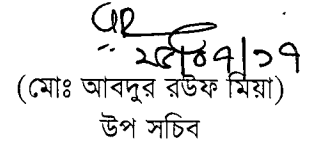 ২৫/০৭/১৭
(মোঃ আবদুর রউফ মিয়া)
উপ সচিব